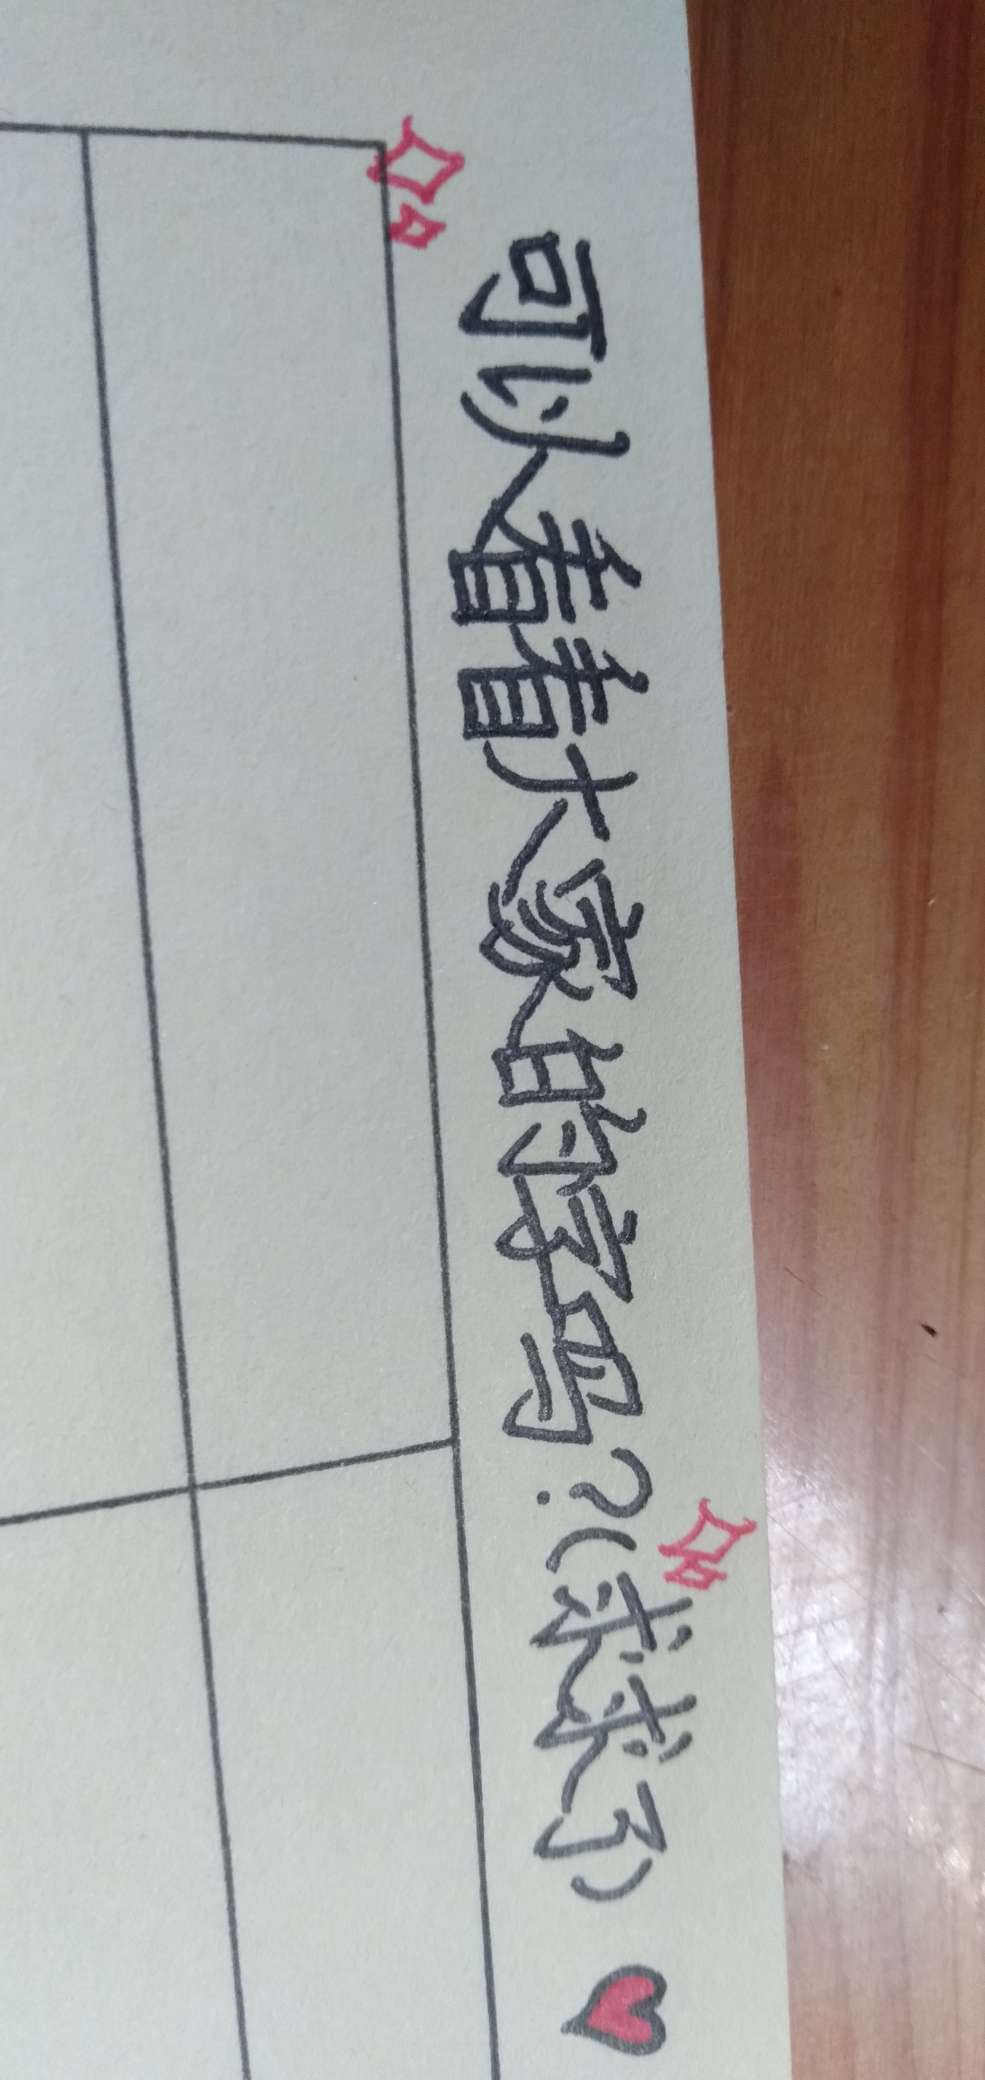 可以看看大家的字吗?(求求了)